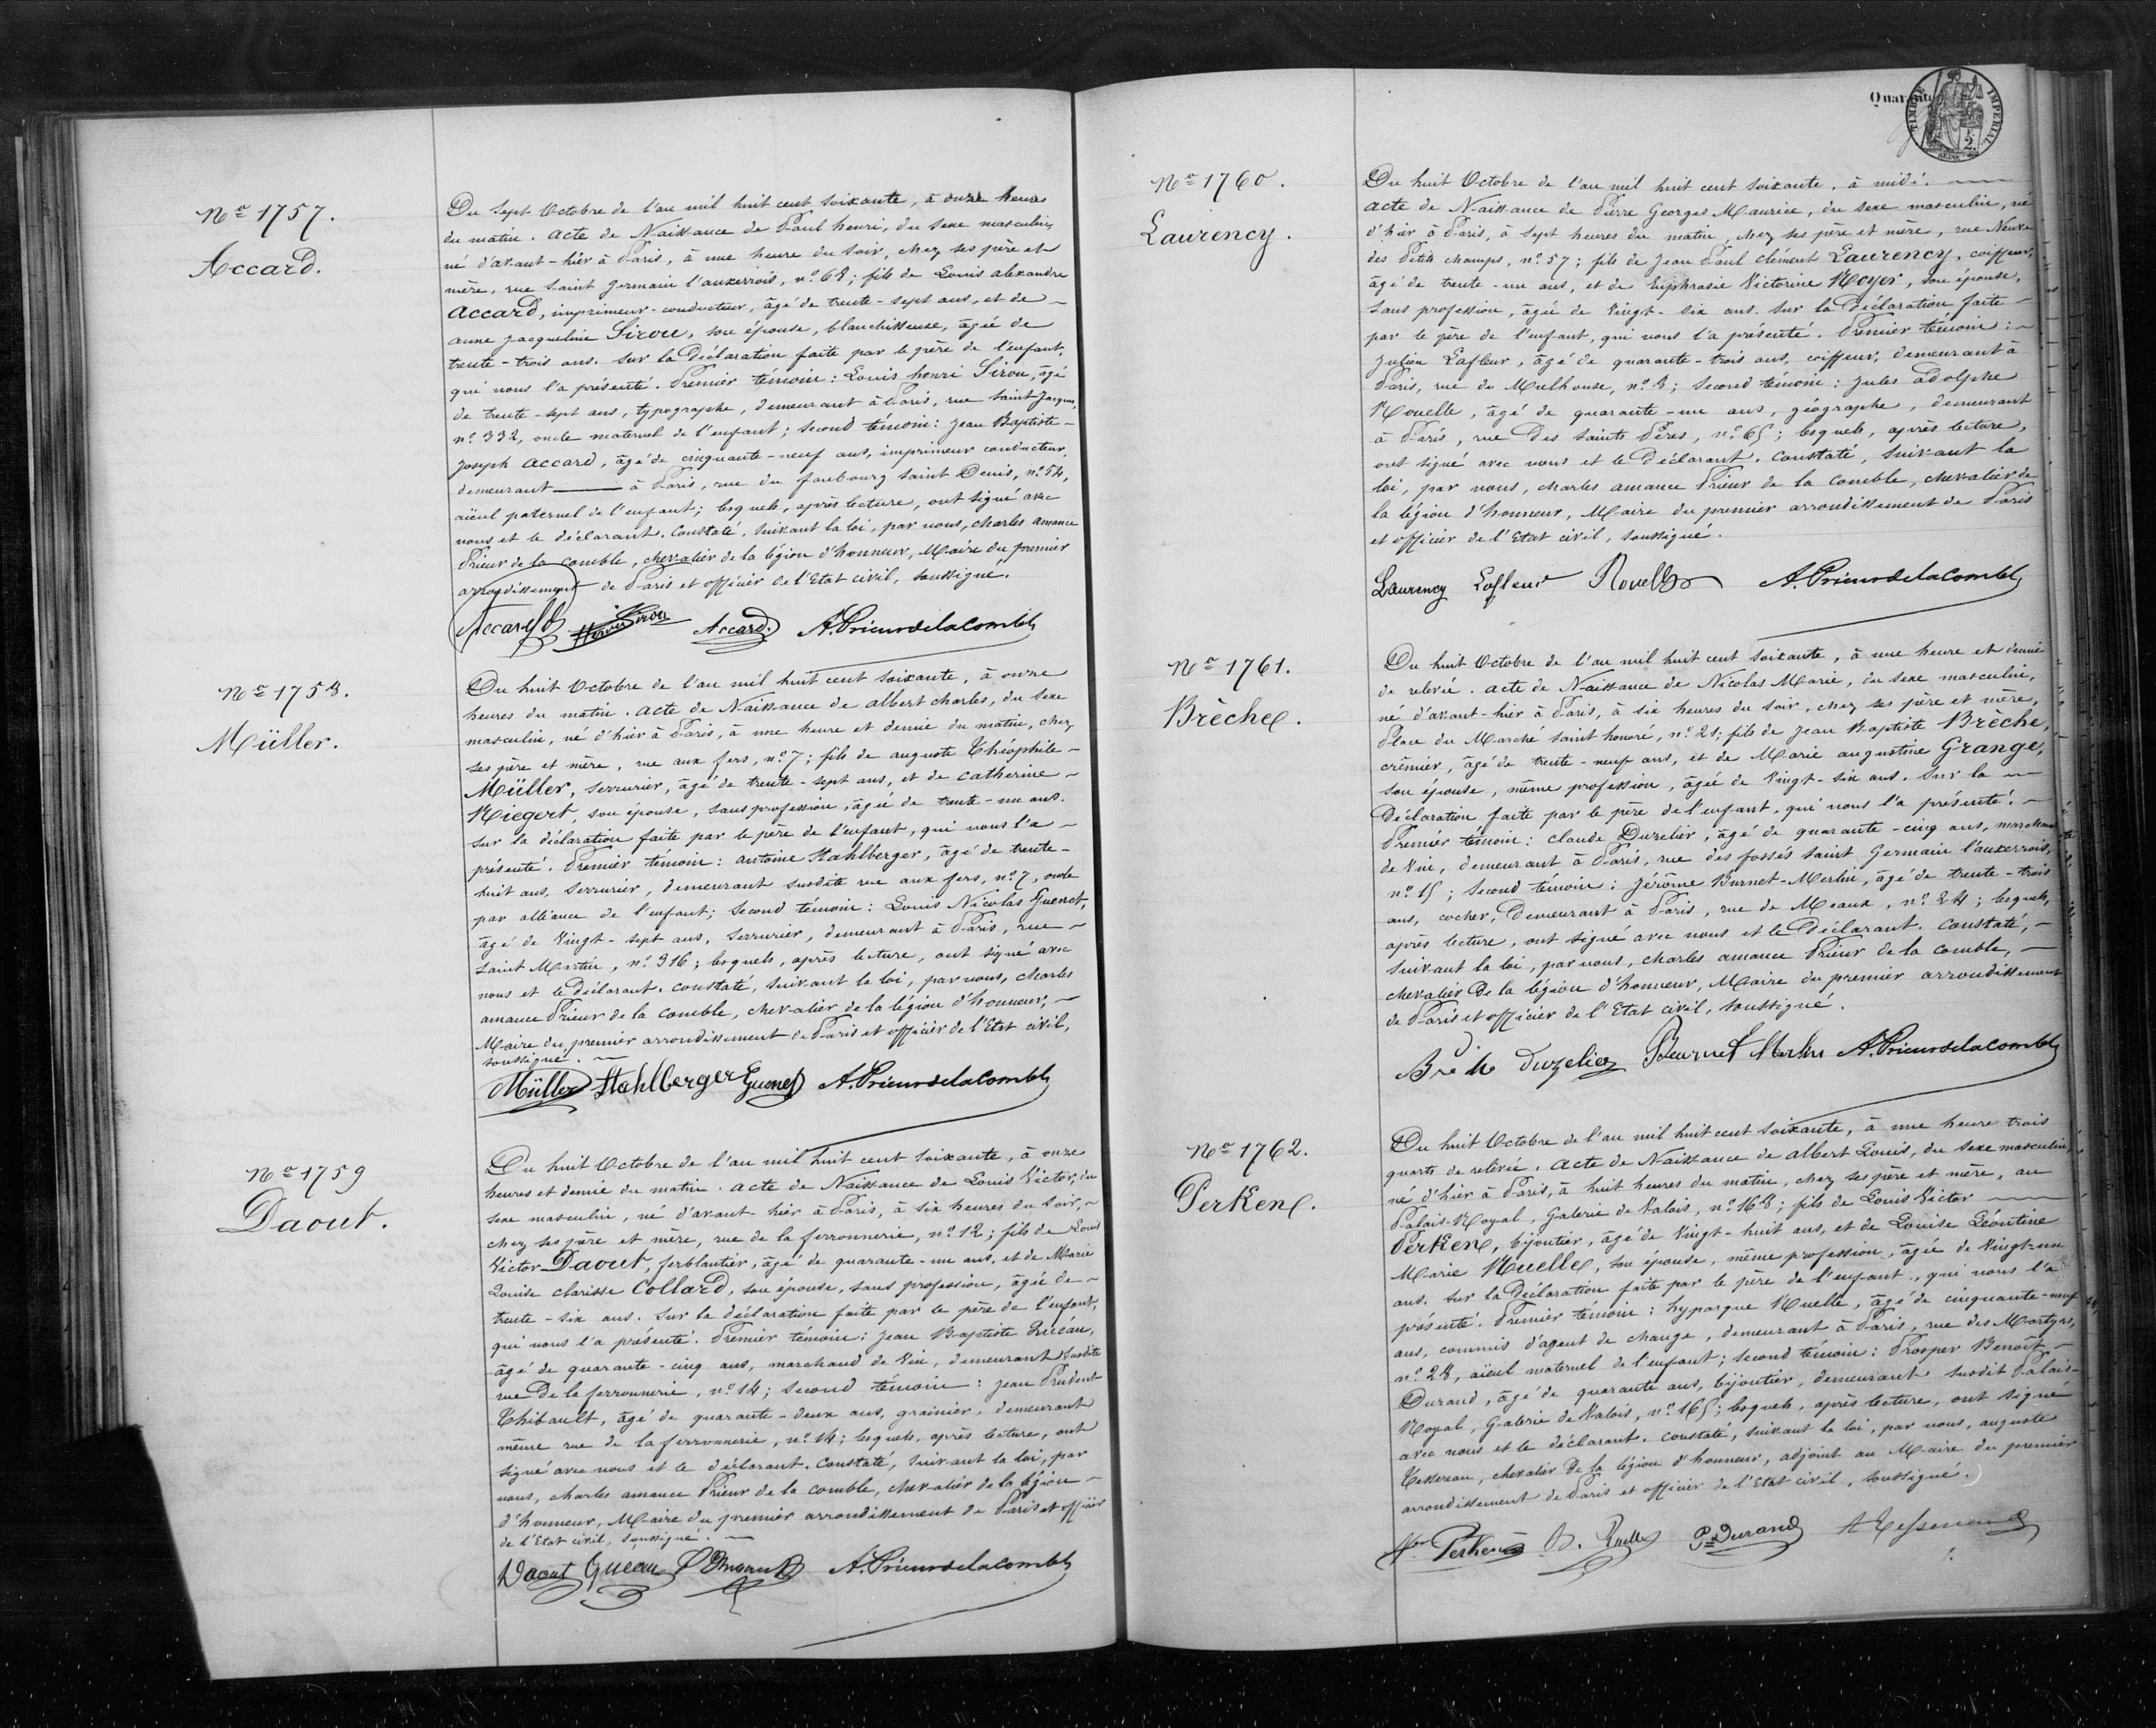 No 1757.
Accard.
Du Sept Octobre de l'an mil huit cent soixante, à onze heures
du matin. acte de Naissance de Paul henri, du sexe masculin,
né d'avant-hier à Paris, à une heure du soir, chez ses père et
mère, rue Saint Germain l'auxerrois, no 68; fils de Louis alexandre
Accard, imprimeur-conducteur, âgé de trente-sept ans, et de
anne jacqueline Sirou, son épouse, blanchisseuse, âgée de
trente-trois ans. Sur la Déclaration faite par le père de l'enfant,
qui nous l'a présenté. Premier témoin: Louis henri Sirou, âgé
de trente-sept ans, typographe, demeurant à Paris, rue Saint Jacques,
no 332, oncle maternel de l'enfant; Second témoin: Jean Baptiste
Joseph Accard, âgé de cinquante-neuf ans, imprimeur conducteur,
demeurant à Paris, rue du faubourg Saint Denis, no 54,
aïeul paternel de l'enfant; lesquels, après lecture, ont signé avec
nous et le déclarant. Constaté, suivant la loi, par nous, charles amance
Prieur de la Comble, chevalier de la légion d'honneur, Maire du premier
arrondissement de Paris et officier de l'Etat civil, soussigné.
Accard Henri Sirou Accard A. Prieur de la Comble
No 1758.
Müller.
Du huit Octobre de l'an mil huit cent soixante, à onze
heures du matin. acte de Naissance de albert charles, du sexe
masculin, né d'hier à Paris, à une heure et demie du matin, chez
ses père et mère, rue aux fers, no 7; fils de auguste Théophile
Müller, serrurier, âgé de trente-sept ans, et de catherine
Riegert, son épouse, sans profession, âgée de trente-un ans.
Sur la déclaration faite par le père de l'enfant, qui nous l'a
présenté. Premier témoin: antoine Stahlberger, âgé de trente-
huit ans, Serrurier, demeurant susdite rue aux fers, no 7, oncle
par alliance de l'enfant; second témoin: Louis Nicolas Guenet,
âgé de Vingt-sept ans, Serrurier, demeurant à Paris, rue
Saint Martin, no 316; lesquels, après lecture, ont signé avec
nous et le Déclarant. Constaté, suivant la loi, par nous, charles
amance Prieur de la Comble, chevalier de la légion d'honneur,
Maire du premier arrondissement de Paris et officier de l'Etat civil,
soussigné.
Müller Stahlberger Guenet A. Prieur de la Comble
No 1759
Daout.
Du huit Octobre de l'an mil huit cent soixante, à onze
heures et demie du matin. acte de Naissance de Louis Victor, du
sexe masculin, né d'avant-hier à Paris, à six heures du soir,
chez ses père et mère, rue de la ferronnerie, no 12; fils de Louis
Victor Daout, ferblantier, âgé de quarante-un ans, et de Marie
Louise clarisse Collard, son épouse, sans profession, âgée de
trente-six ans. Sur la déclaration faite par le père de l'enfant,
qui nous l'a présenté. Premier témoin: Jean Baptiste
âgé de quarante-cinq ans, marchand de Vin, demeurant susdite
rue De la ferronnerie, no 14; Second témoin: Jean Prudent
Thibault, âgé de quarante-deux ans, grainier, demeurant
même rue de la ferronnerie, no 14; lesquels, après lecture, ont
signé avec nous et le déclarant. Constaté, suivant la loi, par
nous, charles amance Prieur de la Comble, chevalier de la légion
d'honneur, Maire du premier arrondissement de Paris et officier
de l'Etat civil, soussigné.
Daout A. Prieur de la Comble
Quarante
TIMBRE IMPERIAL
2.
SEINE
No 1760.
Laurency.
Du huit Octobre de l'an mil huit cent soixante, à midi.
acte de Naissance de Pierre Georges Maurice, du sexe masculin, né
d'hier à Paris, à sept heures du matin, chez ses père et mère, rue Neuve
des Petits champs, no 57; fils de Jean Paul clément Laurency, coiffeur,
âgé de trente-un ans, et de Euphrasie Victorine Royer, son épouse,
sans profession, âgée de Vingt-six ans. Sur la Déclaration faite
par le père de l'enfant, qui nous l'a présenté. Premier témoin:
Julien Lafleur, âgé de quarante-trois ans, coiffeur, demeurant à
Paris, rue de Mulhouse, no 8; second témoin: Jules adolphe
Rouelle, âgé de quarante-un ans, géographe, demeurant
à Paris, rue Des Saints Pères, no 65; lesquels, après lecture,
ont signé avec nous et le Déclarant. Constaté, suivant la
loi, par nous, charles amance Prieur de la Comble, chevalier de
la légion d'honneur, Maire du premier arrondissement de Paris
et officier de l'Etat civil, soussigné.
Laurency Lafleur Rouelle A. Prieur de la Comble
No 1761.
Brèche.
Du huit Octobre de l'an mil huit cent soixante, à une heure et demie
de relevée. acte de Naissance de Nicolas Marie, du sexe masculin,
né d'avant-hier à Paris, à six heures du soir, chez ses père et mère,
Place du Marché Saint honoré, no 21; fils de Jean Baptiste Brèche,
crémier, âgé de trente-neuf ans, et de Marie augustine Grange,
son épouse, même profession, âgée de Vingt-six ans. Sur la
Déclaration faite par le père de l'enfant, qui nous l'a présenté.
Premier témoin: claude Duzelier, âgé de quarante-cinq ans, marchand
de Vin, demeurant à Paris, rue des fossés Saint Germain l'auxerrois,
no 15; Second témoin: Jérôme Burnet-Merlin, âgé de trente-trois
ans, cocher, Demeurant à Paris, rue de Meaux, no 24; lesquels,
après lecture, ont signé avec nous et le Déclarant. Constaté,
suivant la loi, par nous, charles amance Prieur de la Comble,
chevalier De la légion d'honneur, Maire du premier arrondissement
de Paris et officier de l'Etat civil, soussigné.
Brèche Duzelier Burnet Merlin A. Prieur de la Comble
No 1762.
Perken.
Du huit Octobre de l'an mil huit cent soixante, à une heure trois
quarts de relevée. Acte de Naissance de albert Louis, du sexe masculin,
né d'hier à Paris, à huit heures du matin, chez ses père et mère, au
Palais-Royal, Galerie de Valois, no 168; fils de Louis Victor
Perken, bijoutier, âgé de Vingt-huit ans, et de Louise Léontine
Marie Ruelle, son épouse, même profession, âgée de Vingt-un
ans. Sur la Déclaration faite par le père de l'enfant, qui nous l'a
présenté. Premier témoin: hyparque Ruelle, âgé de cinquante-neuf
ans, commis d'agent de change, demeurant à Paris, rue des Martyrs,
no 28, aïeul maternel de l'enfant; second témoin: Prosper Benoît
Durand, âgé de quarante ans, bijoutier, demeurant susdit Palais-
Royal, Galerie de Valois, no 165; lesquels, après lecture, ont signé
avec nous et le déclarant. Constaté, suivant la loi, par nous, auguste
Tessereau, chevalier De la légion d'honneur, adjoint au Maire du premier
arrondissement de Paris et officier de l'Etat civil, soussigné.
Perken Ruelle P. Durand A. Tessereau